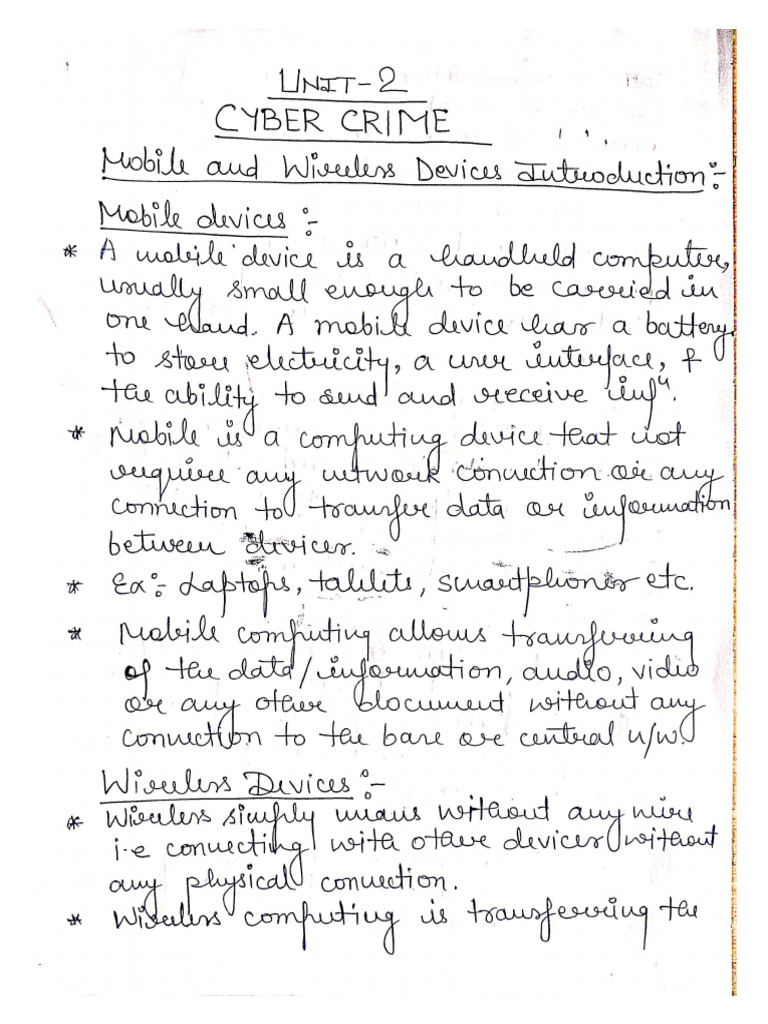 UNIT-2
CYBER CRIME
Mobile and Wireless Devices Introduction:-
Mobile devices :-
* A mobile device is a handheld computer,
usually small enough to be carried in
one hand. A mobile device has a battery
to store electricity, a user interface, &
the ability to send and receive infⁿ.
* Mobile is a computing device that not
require any network connection or any
connection to transfer data or information
between devices.
* Ex:- Laptops, tablets, smartphones etc.
* Mobile computing allows transferring
of the data/information, audio, video
or any other document without any
connection to the base or central n/w.
Wireless Devices :-
* Wireless simply means without any wire
i.e connecting with other devices without
any physical connection.
* Wireless computing is transferring the